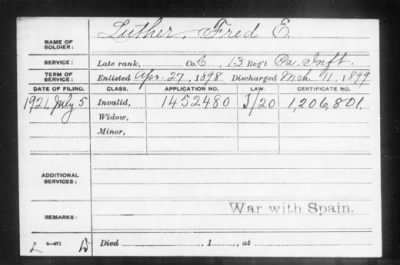 NAME OF SOLDIER: Luther, Fred E.
SERVICE: Late rank, Co. C, 13 Reg't Pa. Inft.
TERM OF SERVICE: Enlisted Apr. 27, 1898 Discharged Mch. 11, 1899
DATE OF FILING. CLASS. APPLICATION NO. LAW. CERTIFICATE NO.
1921, July 5 Invalid, 1452480 J/20 1,206,801.
Widow,
Minor,
ADDITIONAL SERVICES:
REMARKS: War with Spain.
Died , 1 , at